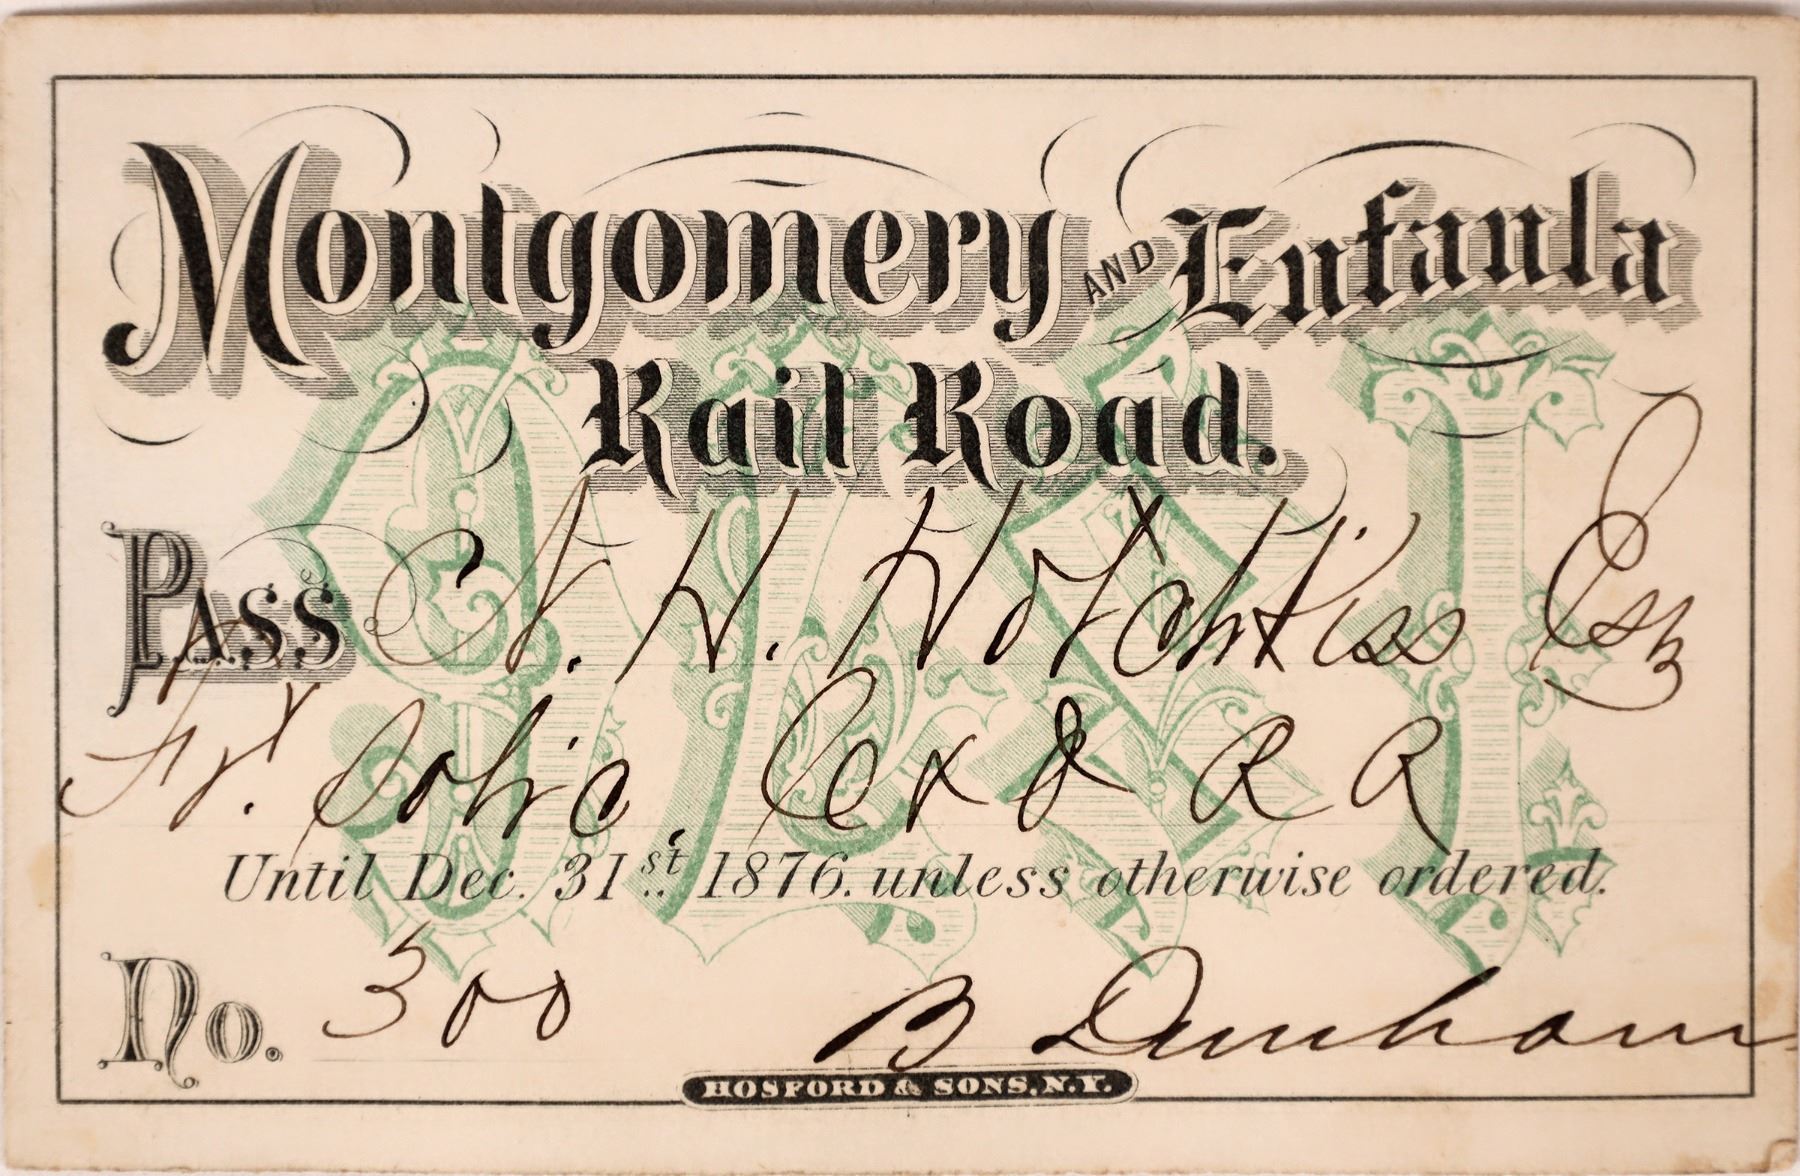 Montgomery AND Eufaula
Rail Road.
PASS C. N. H. Hotchkiss Esq
& R R
Until Dec. 31st 1876. unless otherwise ordered.
No. 300 B Dunham
HOSFORD & SONS, N.Y.